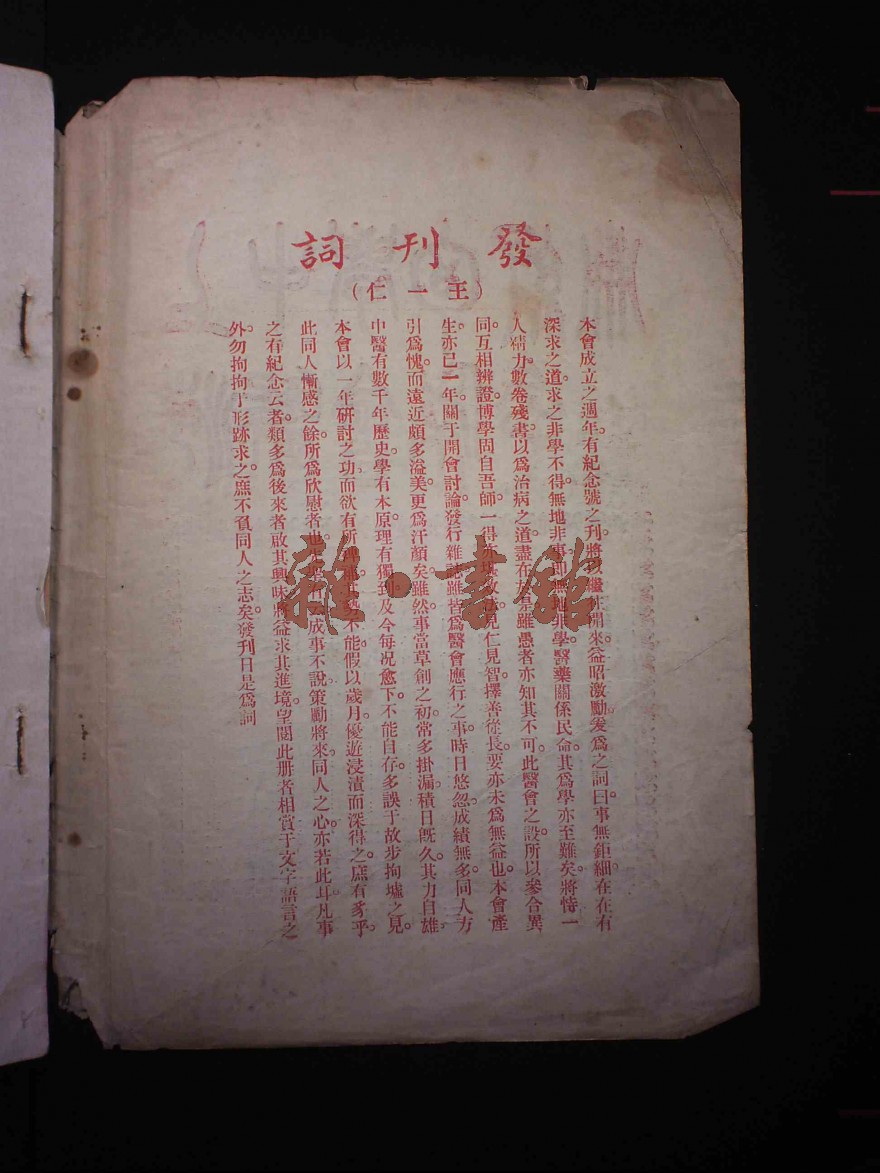 發刊詞
（王一仁）
本會成立之週年。有紀念號之刊。將以繼往開來。益昭激勵。爰爲之詞曰。事無鉅細。在在有
深求之道。求之非學不得。無地非事。即無地非學。醫藥關係民命。其爲學亦至難矣。將恃一
人精力。數卷殘書。以爲治病之道盡在於是。雖愚者亦知其不可。此醫會之設。所以參合異
同。互相辨證。博學固自吾師。一得 見仁見智。擇善從長。要亦未爲無益也。本會產
生。亦已一年。關于開會討論。發行雜誌。雖皆爲醫會應行之事。時日悠忽。成績無多。同人方
引爲愧。而遠近頗多溢美。更爲汗顏矣。雖然。事當草創之初。常多掛漏。積日既久。其力自雄
中醫有數千年歷史。學有本原。理有獨到。及今每况愈下。不能自存。多誤于故步拘墟之見。
本會以一年研討之功。而欲有所 不能假以歲月。優遊浸漬而深得之。庶有豸乎。
此同人慚感之餘。所爲欣慰者也。 成事不說。策勵將來。同人之心。亦若此耳。凡事
之有紀念云者。類多爲後來者啟其興味。將益求其進境。望閱此册者。相賞于文字語言之
外。勿拘拘于形跡求之。庶不負同人之志矣。發刊日是爲詞
雜·書館